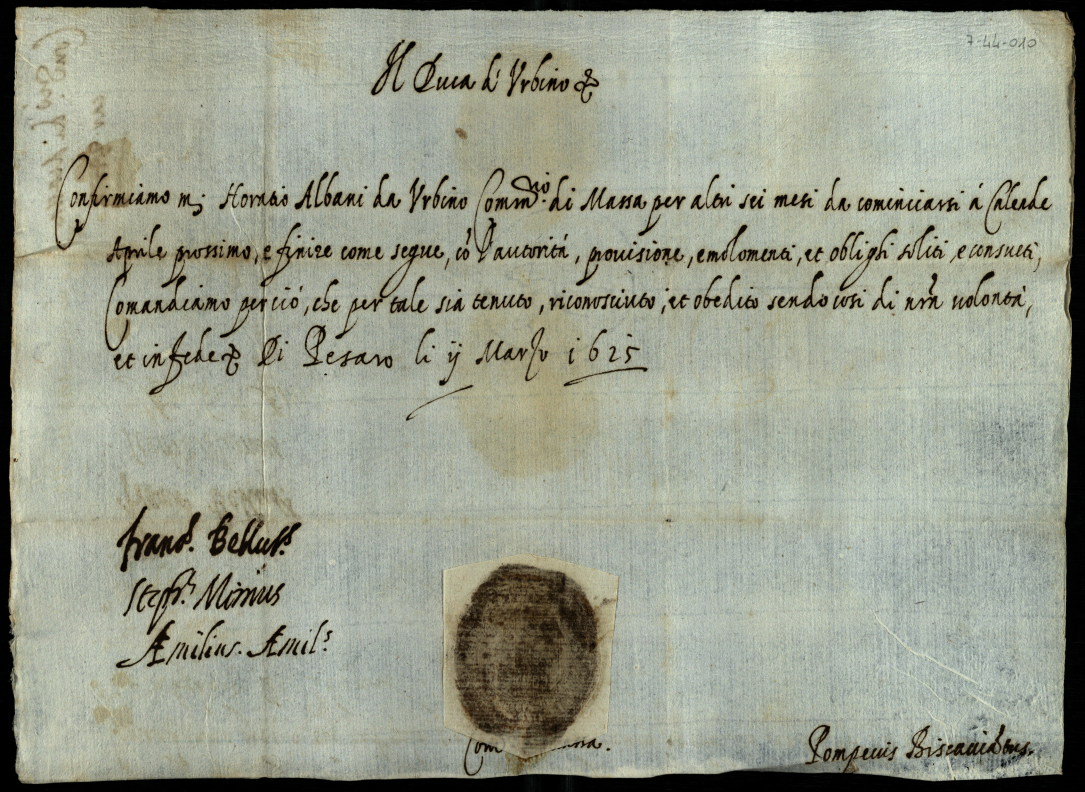 7-44-010
Il Duca d'Urbino &
Confirmiamo m; Horatio Albani da Urbino Comm.rio di Massa per altri sei mesi da cominciarsi á Calende
Aprile prossimo, e finire come segue, cõ l'autoritá, provisione, emolomenti, et oblighi soliti, e consueti,
Comandiamo perció, che per tale sia tenuto, riconosciuto, et obedito sendo cosi di nrã volontá,
et in fede & Di Pesaro li ij Marzo 1625
Franc.s
Steph.s
Æmilius. Æmil.s
Pompeius